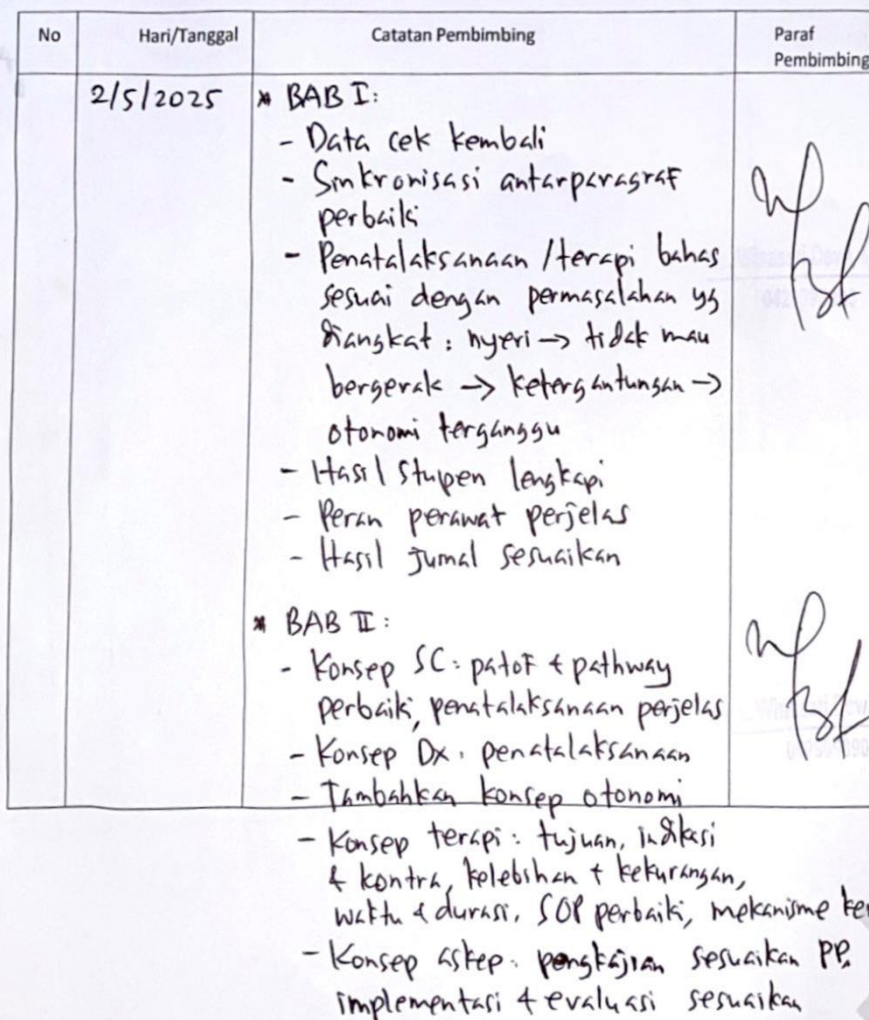 No Hari/Tanggal Catatan Pembimbing Paraf
Pembimbing
2/5/2025 * BAB I:
- Data cek kembali
- Sinkronisasi antarparagraf
perbaiki
- Penatalaksanaan /terapi bahas
sesuai dengan permasalahan yg
diangkat : nyeri → tidak mau
bergerak → ketergantungan →
otonomi terganggu
- Hasil Stupen lengkapi
- Peran perawat perjelas
- Hasil Jurnal sesuaikan
* BAB II:
- Konsep SC: patof & pathway
perbaiki, penatalaksanaan perjelas
- Konsep Dx: penatalaksanaan
- Tambahkan konsep otonomi
- Konsep terapi: tujuan, indikasi
& kontra, kelebihan + kekurangan,
waktu & durasi, SOP perbaiki, mekanisme
- Konsep askep: pengkajian sesuaikan PP,
implementasi & evaluasi sesuaikan